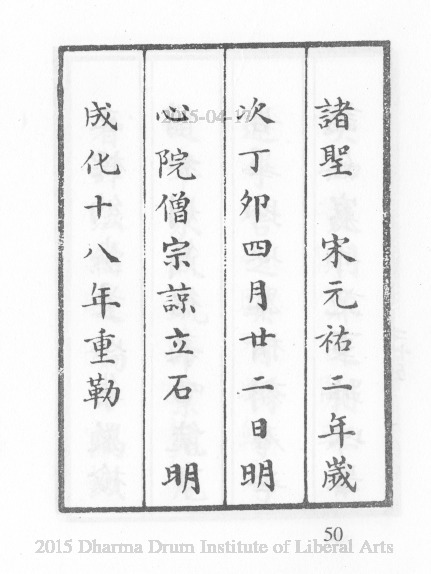 諸聖　宋元祐二年歲
次丁卯四月廿二日明
心院僧宗諒立石　明
成化十八年重勒
2015-04-17
50
2015 Dharma Drum Institute of Liberal Arts